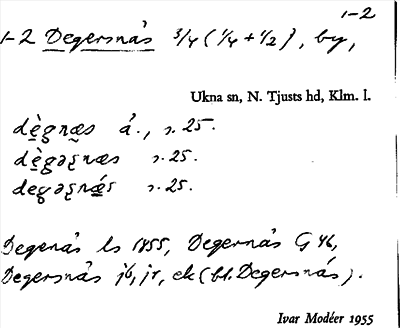 1-2
1-2 Degersnäs 3/4 (1/4 + 1/2), by,
Ukna sn, N. Tjusts hd, Klm. l.
dègnæs å., s. 25.
dègəʂnæs s. 25.
degəʂnǽs s. 25.
Degenäs ls 1855, Degernäs G 46,
Degersnäs jb, jr, ek (bl. Degersnäs).
Ivar Modéer 1955